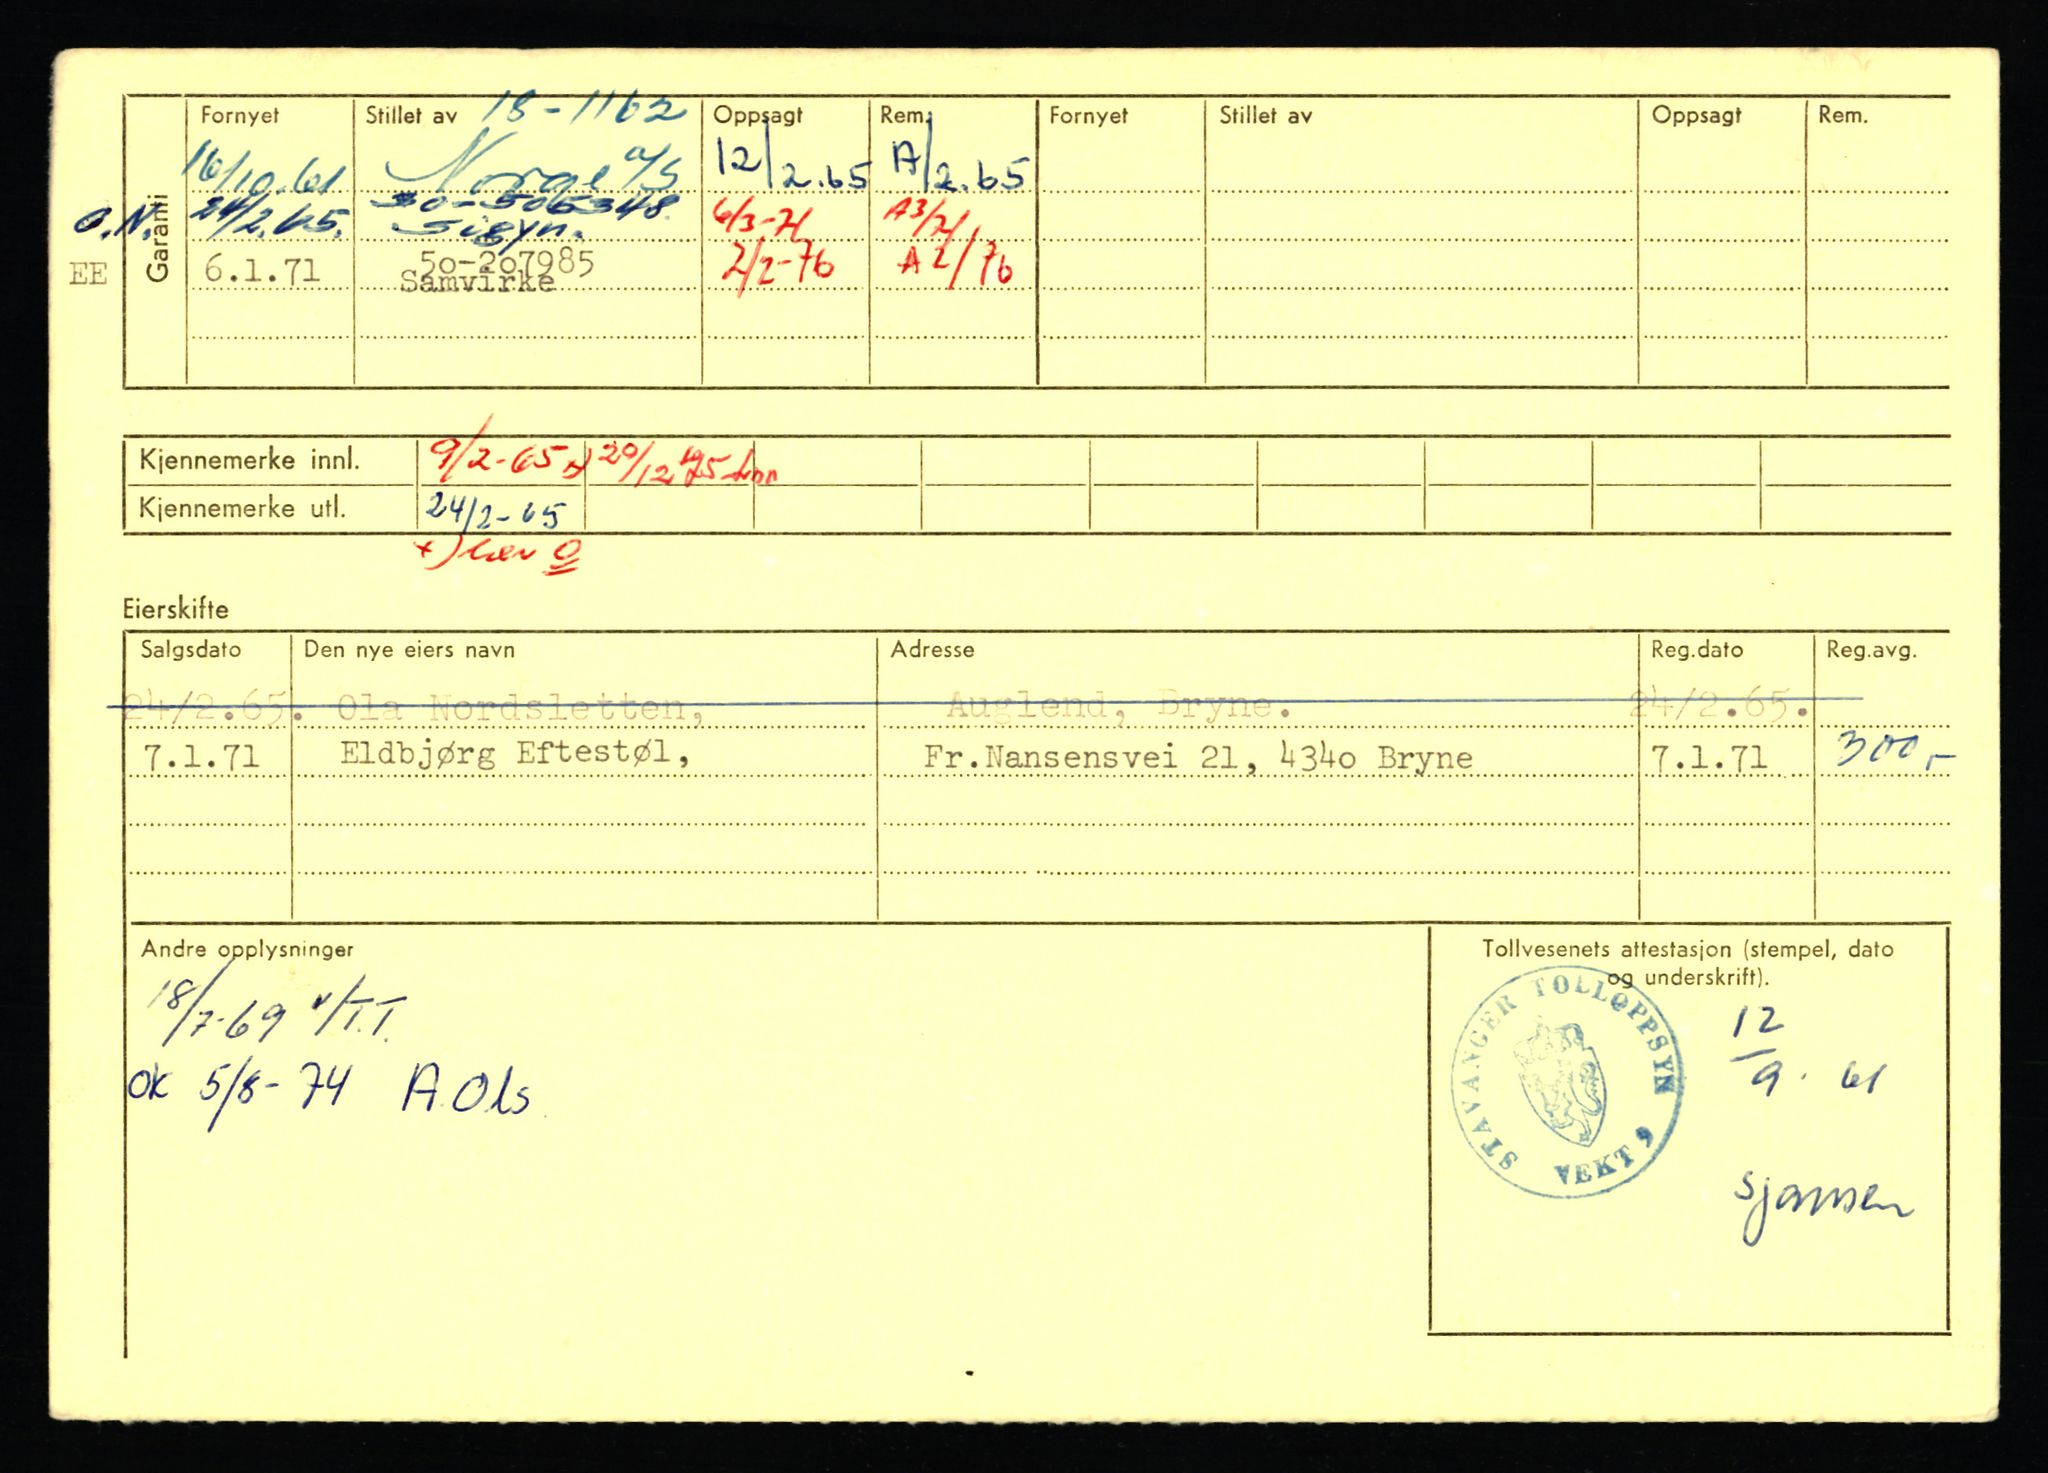 Garanti
Fornyet Stillet av 18-1162 Oppsagt Rem. Fornyet Stillet av Oppsagt Rem.
16/10.61 Norge A/S 12/2.65 A/2.65
O.N. 24/2.65. 30-505348. Sigyn. 6/3-71 A3/71
EE 6.1.71 50-207985 2/2-76 A 2/76
Samvirke
Kjennemerke innl. 9/2-65 x) 20/12 1975
Kjennemerke utl. 24/2-65
x) lev O
Eierskifte
Salgsdato Den nye eiers navn Adresse Reg.dato Reg.avg.
24/2.65. Ola Nordsletten, Auglend, Bryne. 24/2.65.
7.1.71 Eldbjørg Eftestøl, Fr.Nansensvei 21, 434o Bryne 7.1.71 300,-
Andre opplysninger
18/7-69 v/T.T.
OK 5/8-74 A.Ols
Tollvesenets attestasjon (stempel, dato
og underskrift).
STAVANGER TOLLOPPSYN
VEKT 9
12
9. 61
Sjansen